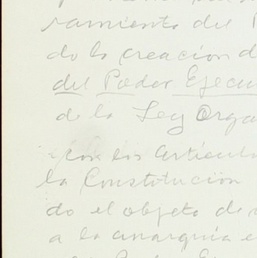 ramiento del P
do la creación d
del Poder Ejecu
de la Ley Orga
con los articulo
la Constitución
do el objeto de
a la anarquía e